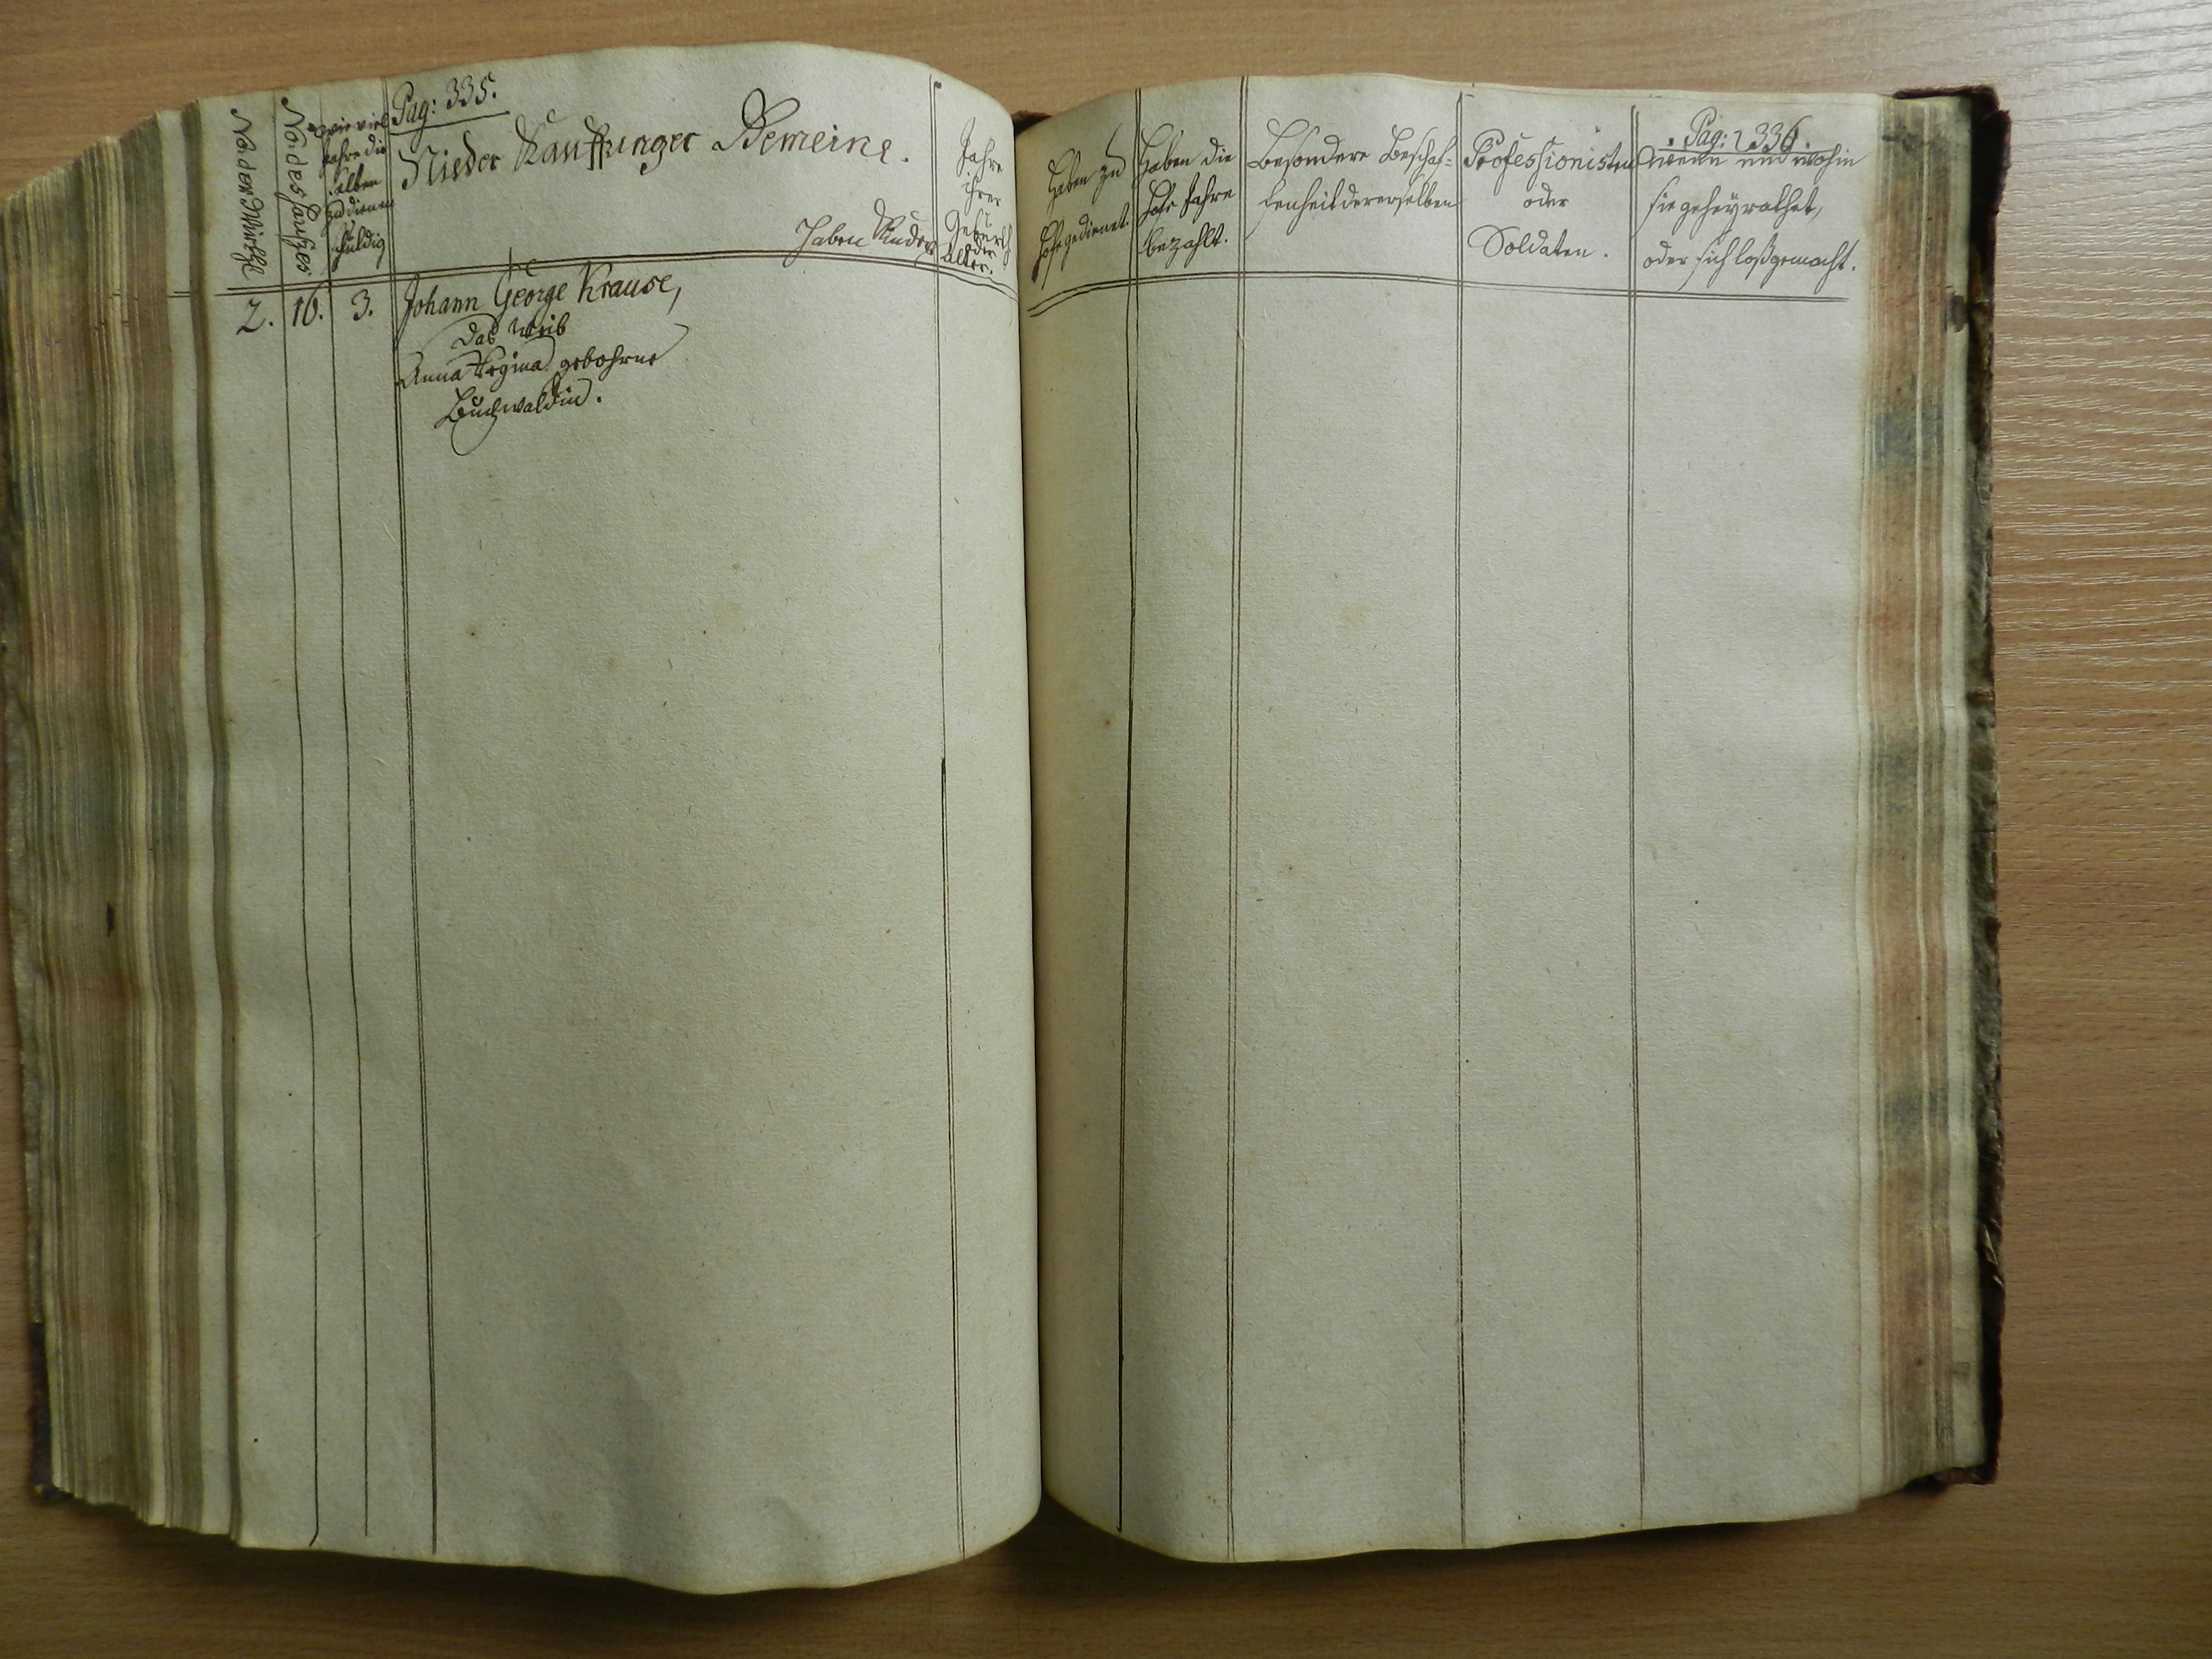 Pag: 335.
No: der Mühle
No: des Haußes
wie viel
Jahre die
selben
zu dienen
schuldig
Nieder Kauffunger Gemeine.
Haben Kinder
Jahre
ihrer
Geburth
oder
Alter.
2. 16. 3. Johann George Krause,
das Weib
Anna Regina gebohrne
Buchwaldin.
Pag: 336.
Haben zu
Hofe gedienet.
Haben die
Hofe Jahre
bezahlt.
Besondere Beschaf-
fenheit dererselben
Professionisten
oder
Soldaten.
wenn und wohin
sie geheyrathet,
oder sich loßgemacht.